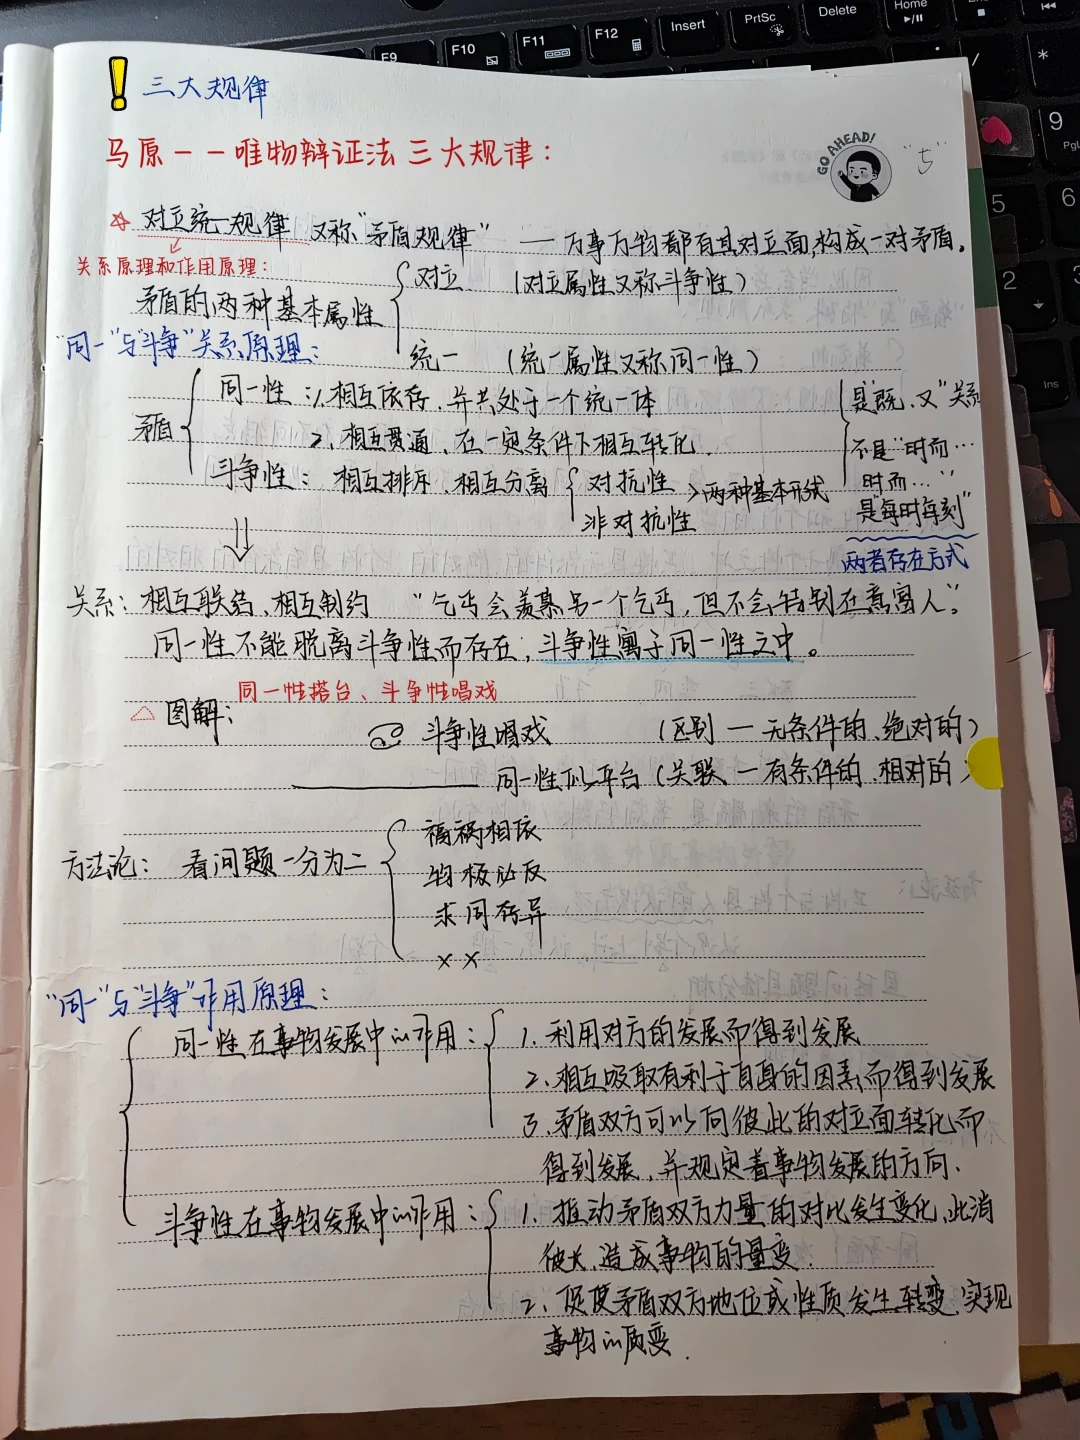 F9 F10 F11 F12 Insert PrtSc Delete Home
三大规律
马原——唯物辩证法三大规律：
GO AHEAD!
“5”
☆ 对立统一规律 又称“矛盾规律” ——万事万物都有其对立面,构成一对矛盾。
关系原理和作用原理：
矛盾的两种基本属性
对立 (对立属性又称斗争性)
统一 (统一属性又称同一性)
“同一”与“斗争”关系原理：
矛盾
同一性：1、相互依存、并共处于一个统一体
2、相互贯通、在一定条件下相互转化.
斗争性：相互排斥、相互分离
对抗性
非对抗性
>两种基本形式
是“既、又”关系
不是“时而…
时而…”
是“每时每刻”
两者存在方式
关系：相互联结、相互制约 “乞丐会羡慕另一个乞丐,但不会特别在意富人”。
同一性不能脱离斗争性而存在；斗争性寓于同一性之中。
△ 图解：
同一性搭台、斗争性唱戏
斗争性唱戏 (区别—无条件的、绝对的)
同一性似平台 (关联、—有条件的、相对的)
方法论： 看问题一分为二
福祸相依
物极必反
求同存异
××
“同一”与“斗争”作用原理：
同一性在事物发展中的作用：
1、利用对方的发展而得到发展
2、相互吸取有利于自身的因素而得到发展
3、矛盾双方可以向彼此的对立面转化而
得到发展、并规定着事物发展的方向.
斗争性在事物发展中的作用：
1、推动矛盾双方力量的对比发生变化、此消
彼长、造成事物的量变.
2、促使矛盾双方地位或性质发生转变、实现
事物的质变.